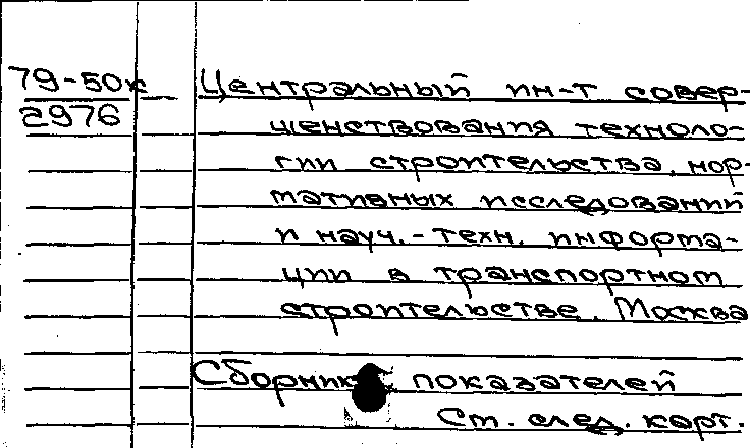 79-50к Центральный ин-т совер-
2976 шенствования техноло-
гии строительства, нор-
мативных исследований
и науч.-техн. информа-
ции в транспортном
строительстве. Москва
Сборник показателей
См. след. карт.